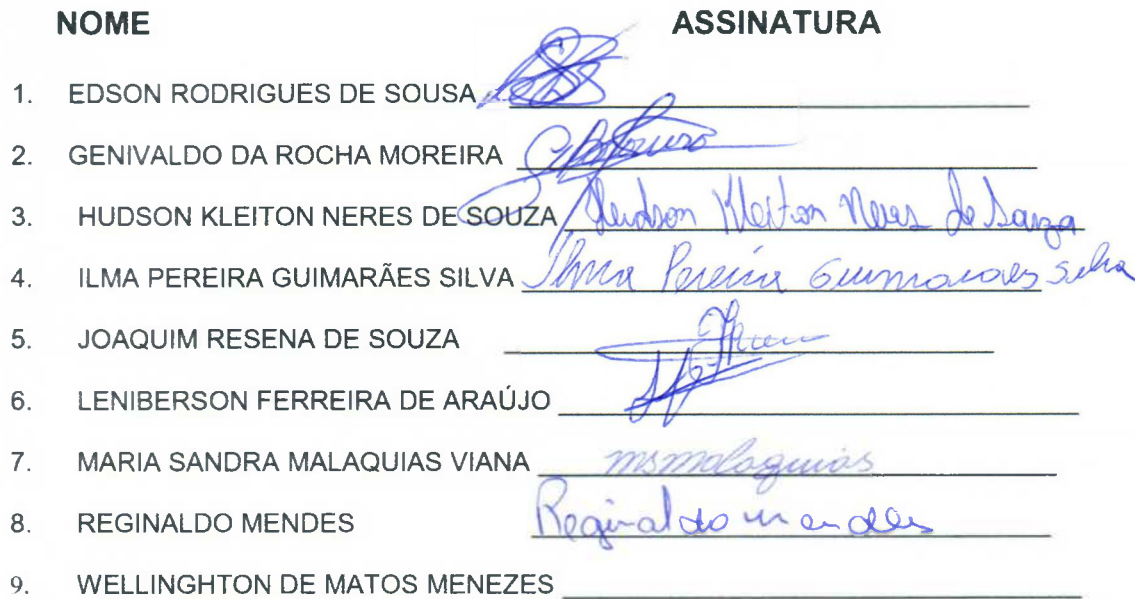 NOME ASSINATURA
1. EDSON RODRIGUES DE SOUSA
2. GENIVALDO DA ROCHA MOREIRA
3. HUDSON KLEITON NERES DE SOUZA Hudson Kleiton Neres de Souza
4. ILMA PEREIRA GUIMARÃES SILVA Ilma Pereira Guimaraes Silva
5. JOAQUIM RESENA DE SOUZA
6. LENIBERSON FERREIRA DE ARAÚJO
7. MARIA SANDRA MALAQUIAS VIANA msmalaquias
8. REGINALDO MENDES Reginaldo mendes
9. WELLINGHTON DE MATOS MENEZES